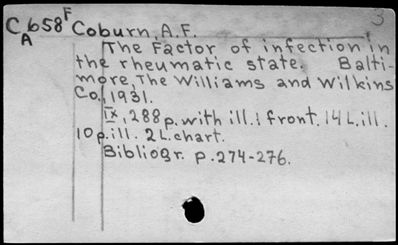 3
C 658 F Coburn, A.F.
A
The Factor of infection in
the rheumatic state. Balti-
more, The Williams and Wilkins
Co., 1931.
IX, 288 p. with ill. 1 front. 14 L. ill.
10 p. ill. 2 L. chart.
Bibliogr. p. 274-276.